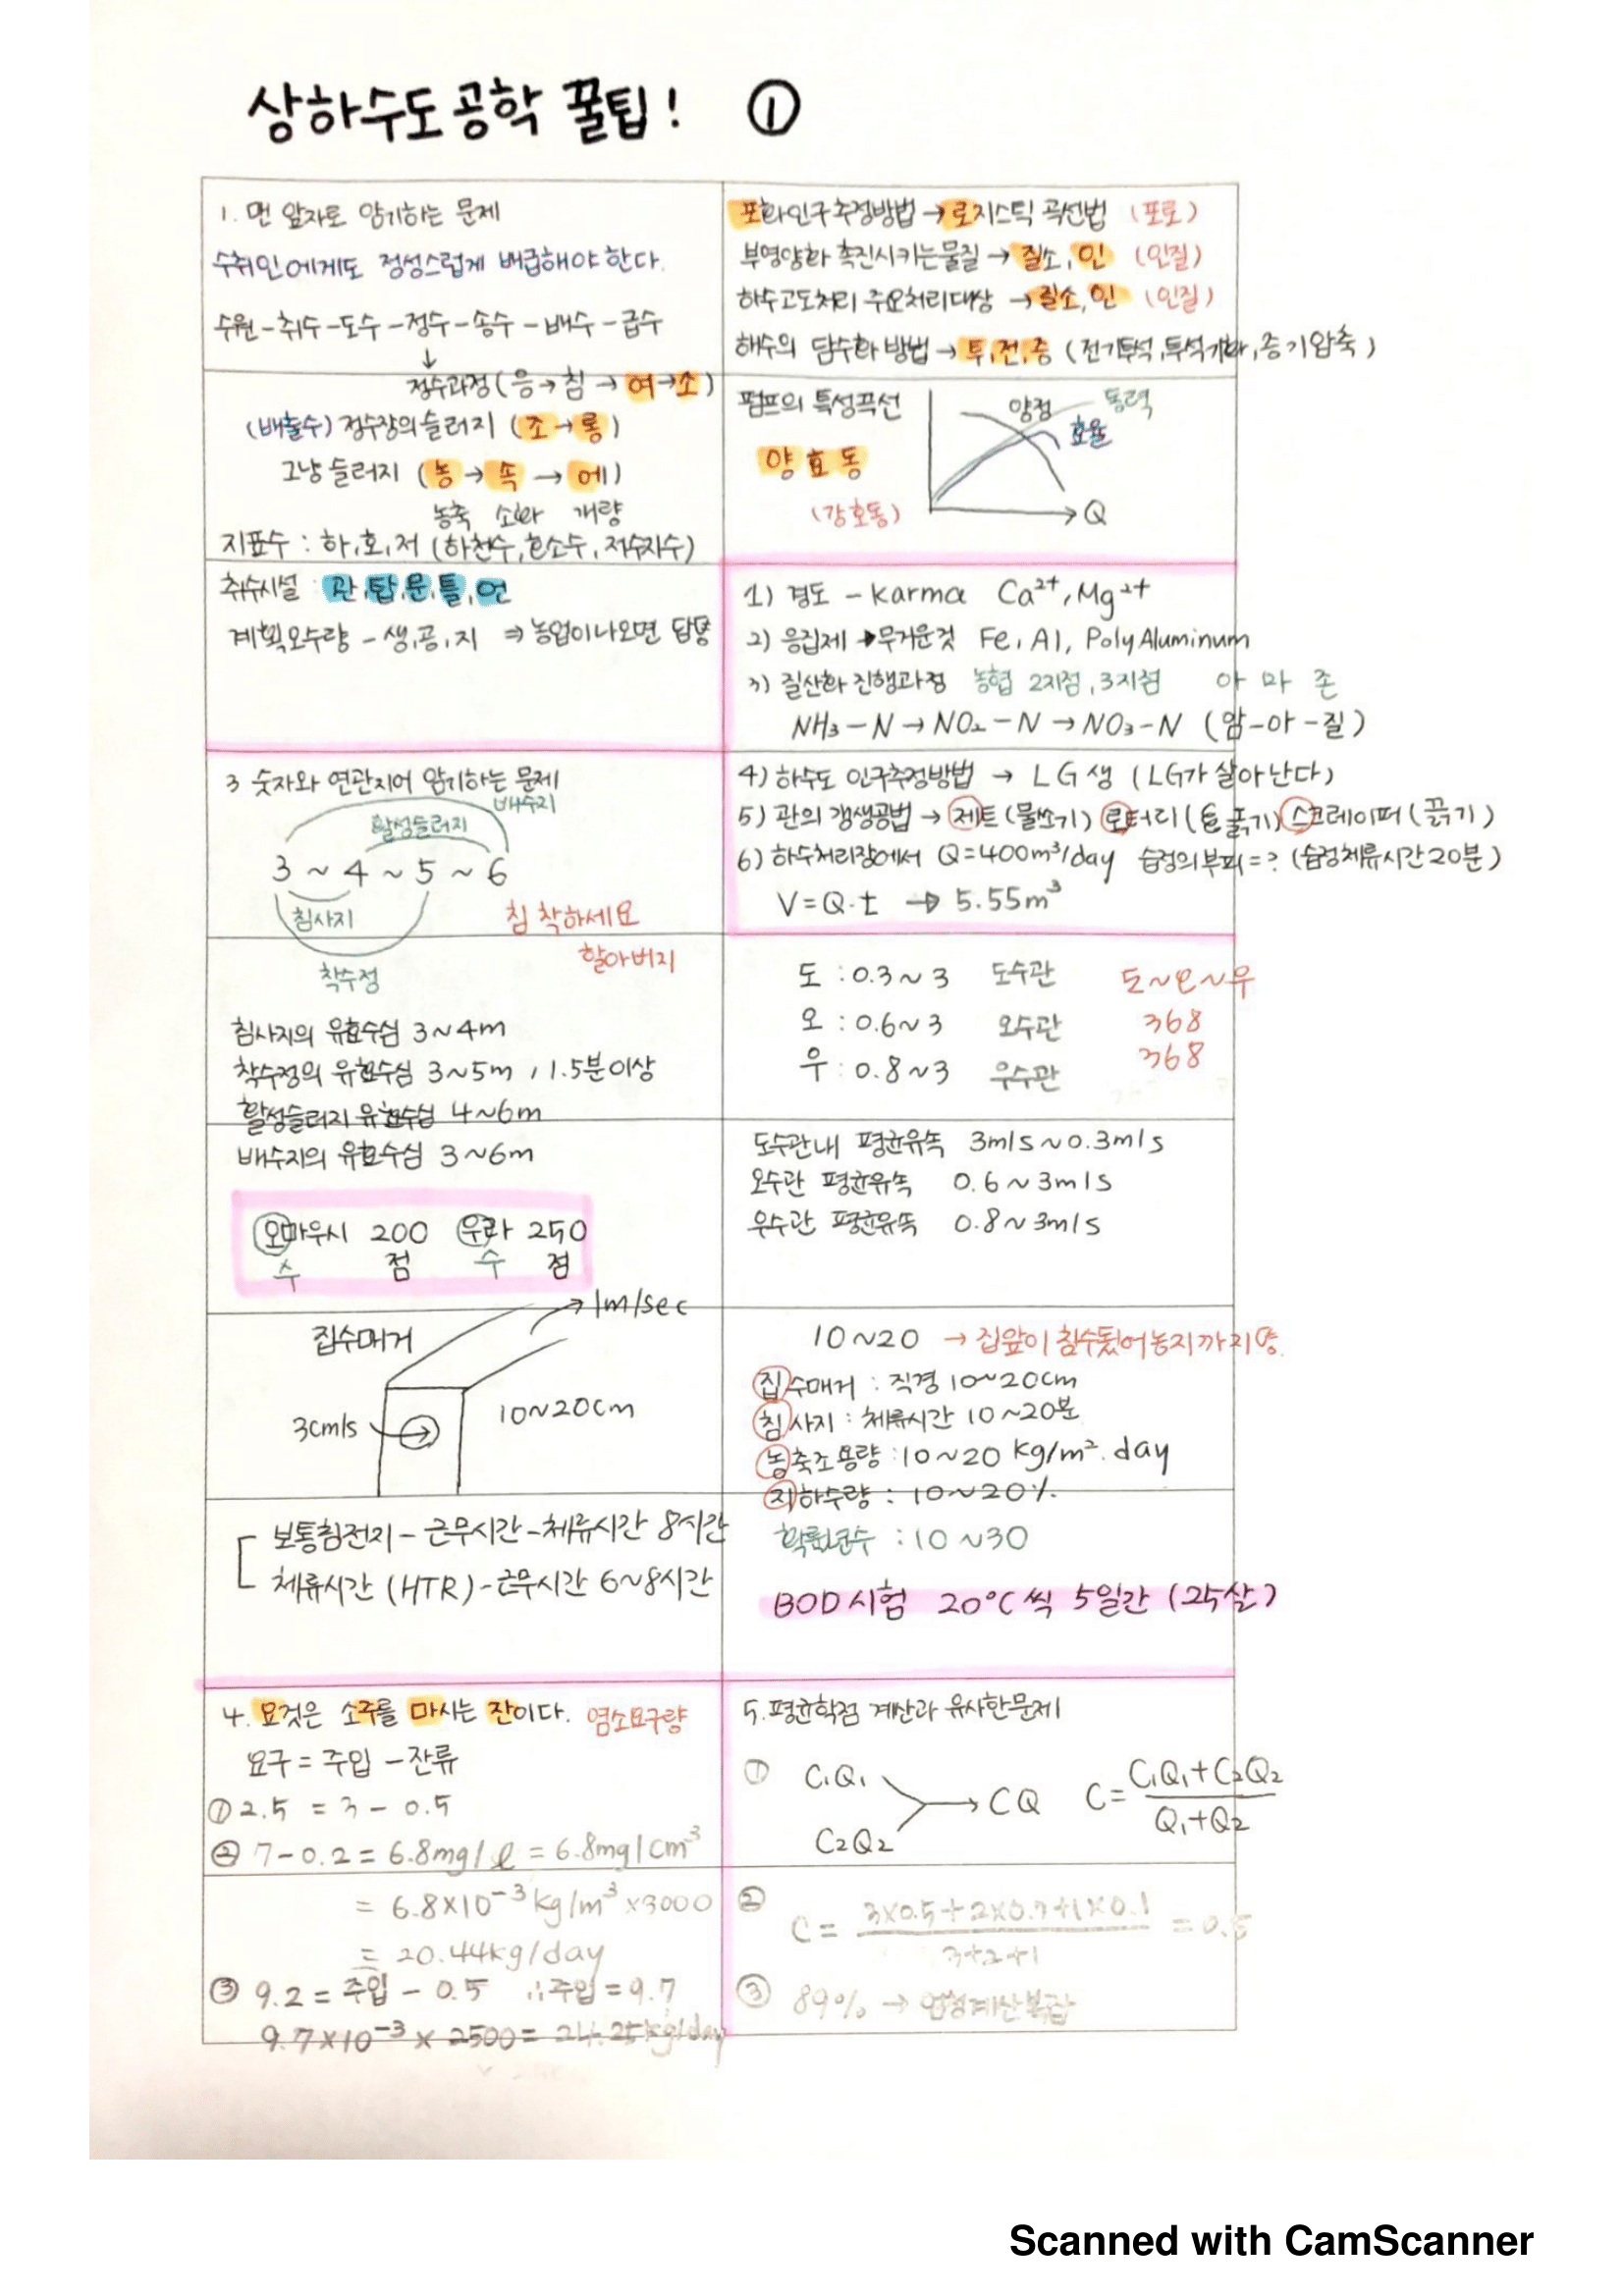 상하수도공학 꿀팁! ①
1. 맨 앞자로 암기하는 문제
수취인에게도 정성스럽게 배급해야한다.
수원-취수-도수-정수-송수-배수-급수
↓
정수과정(응→침→여→소)
(배출수) 정수장의슬러지 (조→롱)
그냥 슬러지 (농→속→에)
농축 소화 개량
지표수 : 하,호,저 (하천수,호소수,저수지수)
취수시설 : 관,탑,문,틀,언
계획오수량 - 생,공,지 ⇒ 농업이나오면 답뿅
포화인구추정방법→로지스틱 곡선법 (포로)
부영양화 촉진시키는물질→질소,인 (인질)
하수고도처리 주요처리대상 →질소,인 (인질)
해수의 담수화 방법→투,전,증 (전기투석,투석기화,증기압축)
펌프의 특성곡선
양정 동력
효율
양 효 동
(강호동)
Q
1) 경도 - karma Ca²⁺, Mg²⁺
2) 응집제 → 무거운것 Fe, Al, Poly Aluminum
3) 질산화 진행과정 농협 2지점,3지점 아 마 존
NH₃-N→NO₂-N→NO₃-N (암-아-질)
3 숫자와 연관지어 암기하는 문제
배수지
활성슬러지
3 ~ 4 ~ 5 ~ 6
침사지
침 착하세요
할아버지
착수정
침사지의 유효수심 3~4m
착수정의 유효수심 3~5m, 1.5분이상
활성슬러지 유효수심 4~6m
배수지의 유효수심 3~6m
오마우시 200 우라 250
수 점 수 점
4) 하수도 인구추정방법 → LG생 (LG가 살아난다)
5) 관의 갱생공법→ 제트(물쏘기) 로터리( 풂기) 스크레이퍼(긁기)
6) 하수처리장에서 Q=400m³/day 습정의부피=? (습정체류시간20분)
V=Q·t → 5.55m³
도 : 0.3~3 도수관 도~오~우
오 : 0.6~3 오수관 368
우 : 0.8~3 우수관 368
도수관내 평균유속 3m/s~0.3m/s
오수관 평균유속 0.6~3m/s
우수관 평균유속 0.8~3m/s
집수매거
1m/sec
3cm/s
10~20cm
10~20 → 집앞이 침수됐어 농지까지
집수매거 : 직경 10~20cm
침사지 : 체류시간 10~20분
농축조용량 : 10~20 kg/m².day
지하수량 : 10~20%
확률년수 : 10~30
BOD시험 20°C씩 5일간 (25살)
보통침전지 - 근무시간 - 체류시간 8시간
체류시간 (HTR) - 근무시간 6~8시간
4. 요것은 소주를 마시는 잔이다. 염소요구량
요구 = 주입 - 잔류
① 2.5 = 3 - 0.5
② 7-0.2 = 6.8mg/ℓ = 6.8mg/cm³
= 6.8×10⁻³kg/m³ ×3000
= 20.44kg/day
③ 9.2 = 주입 - 0.5 ∴주입 = 9.7
9.7×10⁻³ × 2500 = 24.25kg/day
5. 평균학점 계산과 유사한문제
① C₁Q₁ C₂Q₂ → CQ C= C₁Q₁+C₂Q₂ / Q₁+Q₂
② C = 3×0.5+2×0.7+1×0.1 / 3+2+1 = 0.5
③ 89% → 엄청계산복잡
Scanned with CamScanner